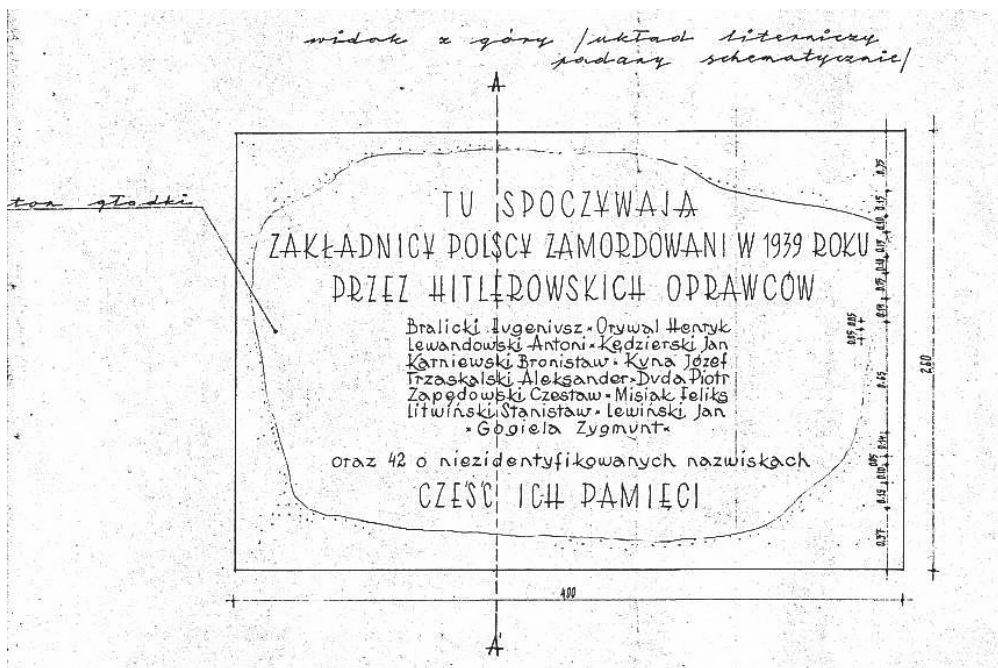 widok z góry /układ literniczy
podany schematycznie/
A
ton gładki
TU SPOCZYWAJA
ZAKŁADNICY POLSCY ZAMORDOWANI W 1939 ROKU
PRZEZ HITLEROWSKICH OPRAWCÓW
Bralicki Eugeniusz · Orywal Henryk
Lewandowski Antoni · Kędzierski Jan
Karniewski Bronisław · Kyna Józef
Trzaskalski Aleksander · Duda Piotr
Zapędowski Czesław · Misiak Feliks
Litwiński Stanisław · Lewiński Jan
· Gogiela Zygmunt ·
oraz 42 o niezidentyfikowanych nazwiskach
CZEŚĆ ICH PAMIĘCI
400
260
A'